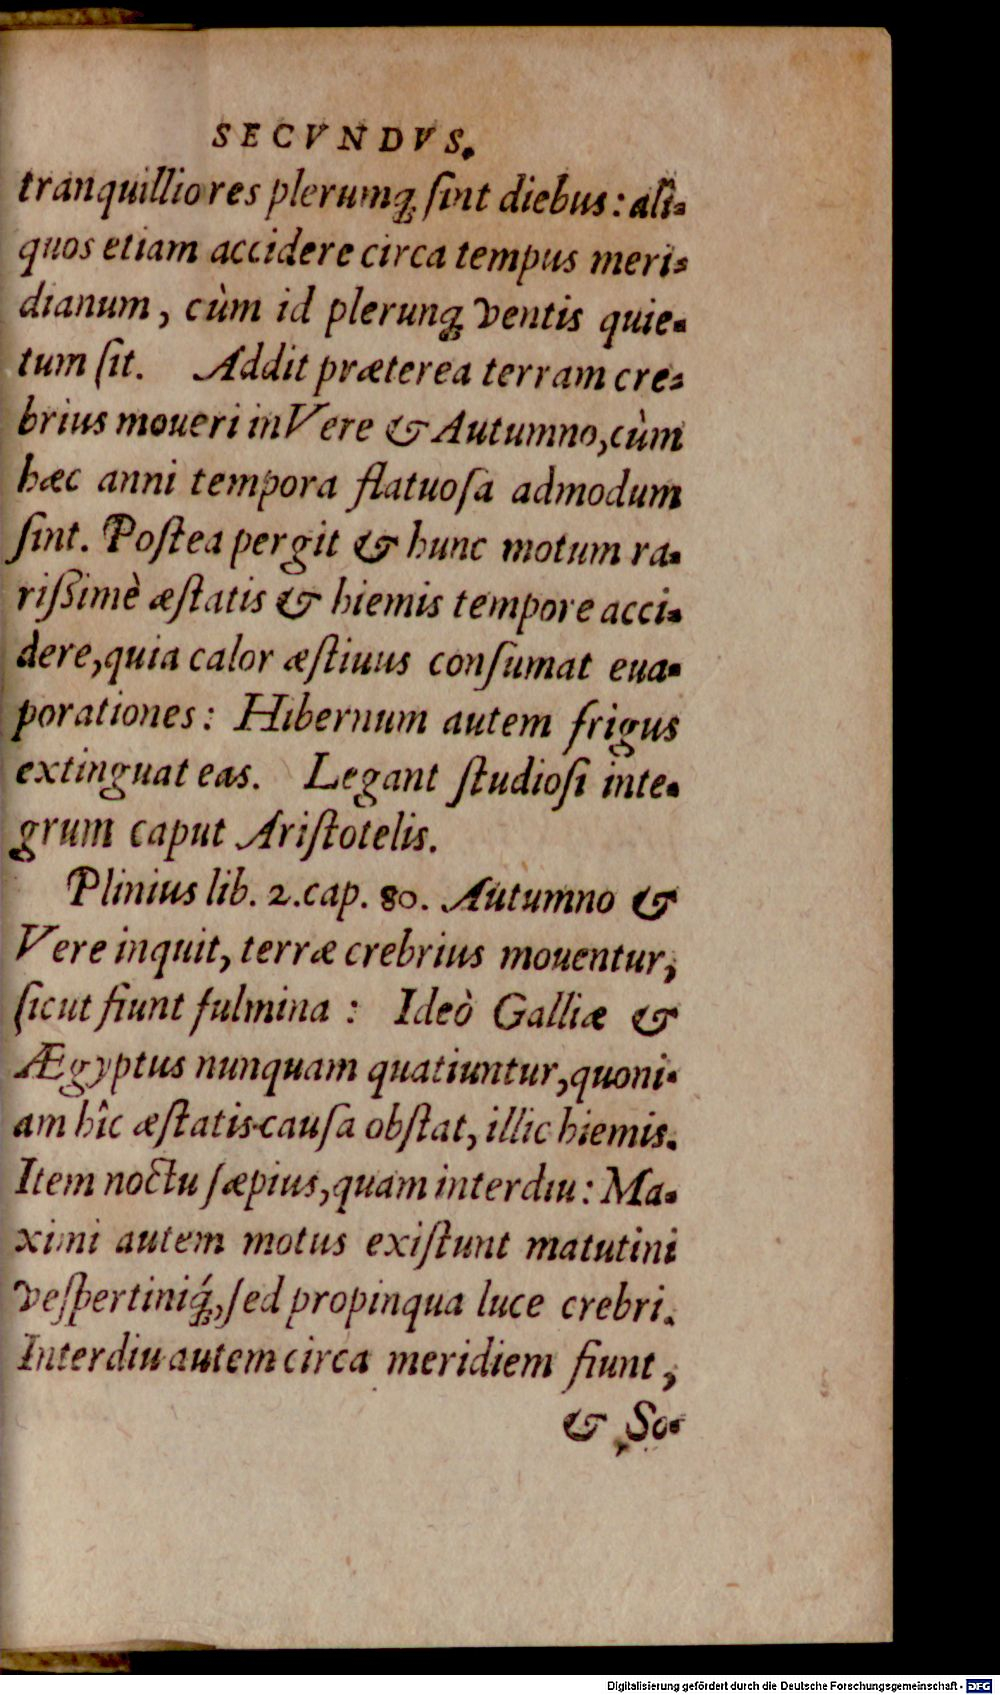 SECVNDVS.
tranquilliores plerumq́; ſint diebus: ali-
quos etiam accidere circa tempus meri-
dianum, cùm id plerunq; ventis quie-
tum ſit. Addit præterea terram cre-
brius moueri in Vere & Autumno, cùm
hæc anni tempora flatuoſa admodum
ſint. Poſtea pergit & hunc motum ra-
riſſimè æſtatis & hiemis tempore acci-
dere, quia calor æſtiuus conſumat eua-
porationes: Hibernum autem frigus
extinguat eas. Legant ſtudioſi inte-
grum caput Ariſtotelis.
Plinius lib. 2. cap. 80. Autumno &
Vere inquit, terræ crebrius mouentur,
ſicut fiunt fulmina: Ideò Galliæ &
Ægyptus nunquam quatiuntur, quoni-
am hîc æſtatis cauſa obſtat, illic hiemis.
Item noctu ſæpius, quam interdiu: Ma-
ximi autem motus exiſtunt matutini
veſpertiniq́;, ſed propinqua luce crebri.
Interdiu autem circa meridiem fiunt,
& So-
Digitalisierung gefördert durch die Deutsche Forschungsgemeinschaft - DFG